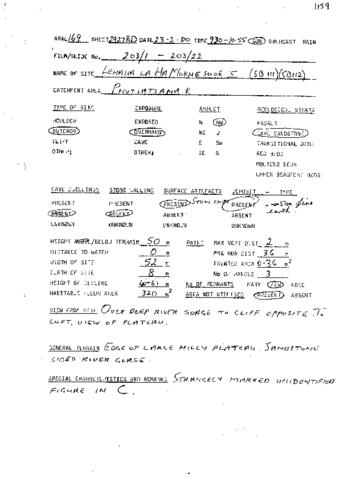 1159
ARAL/69 SHEET 2927BD DATE 23-2-80 TIME 930-10.55 SUN OVERCAST RAIN
FILM/SLIDE No. 203/1 - 203/22
NAME OF SITE LEHAHA LA HA MOKHESUOE 5 (SB 111)(SB112)
CATCHMENT AREA PHUTIATSANA R
TYPE OF SITE EXPOSURE ASPECT GEOLOGICAL STRATA
BOULDER EXPOSED N NW BASALT
OUTCROP OVERHANG NE CAVE SANDSTONE
CLIFF CAVE E SW TRANSITIONAL BEDS
OTHER OTHER SE S RED BEDS
MOLTENO BEDS
UPPER BEAUFORT BEDS
CAVE DWELLINGS STONE WALLING SURFACE ARTEFACTS DEPOSIT - TYPE
PRESENT PRESENT PRESENT STONE CHIPS PRESENT fine
ABSENT ABSENT ABSENT ABSENT earth
UNKNOWN UNKNOWN UNKNOWN UNKNOWN
HEIGHT ABOVE/BELOW TERRAIN 50 m PAINT: MAX VERT DIST 2 m
DISTANCE TO WATER 0 m MAX HOR DIST 36 m
WIDTH OF SITE 52 m PAINTED AREA 0.36 m²
DEPTH OF SITE 8 m No OF PANELS 3
HEIGHT OF CEILING 4-6 m No OF REMNANTS MANY FEW NONE
HABITABLE FLOOR AREA 320 m² AREA NOT UTILISED PRESENT ABSENT
VIEW FROM SITE OVER DEEP RIVER GORGE TO CLIFF OPPOSITE. TO
LEFT, VIEW OF PLATEAU.
GENERAL TERRAIN EDGE OF LARGE HILLY PLATEAU. SANDSTONE
SIDED RIVER GORGE.
SPECIAL CHARACTERISTICS AND REMARKS STRANGELY MARKED UNIDENTIFIED
FIGURE IN C.